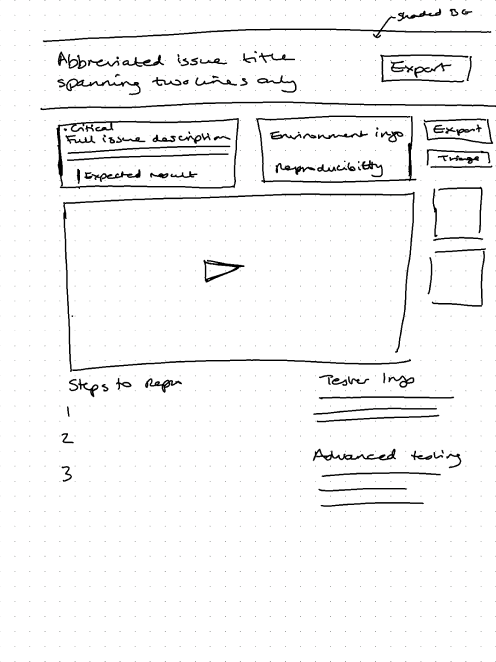 shaded BG
Abbreviated issue title
spanning two lines only
Export
• Critical
Full issue description
Expected result
Environment info
Reproducibility
Export
Triage
Steps to Repro
1
2
3
Tester Info
Advanced testing